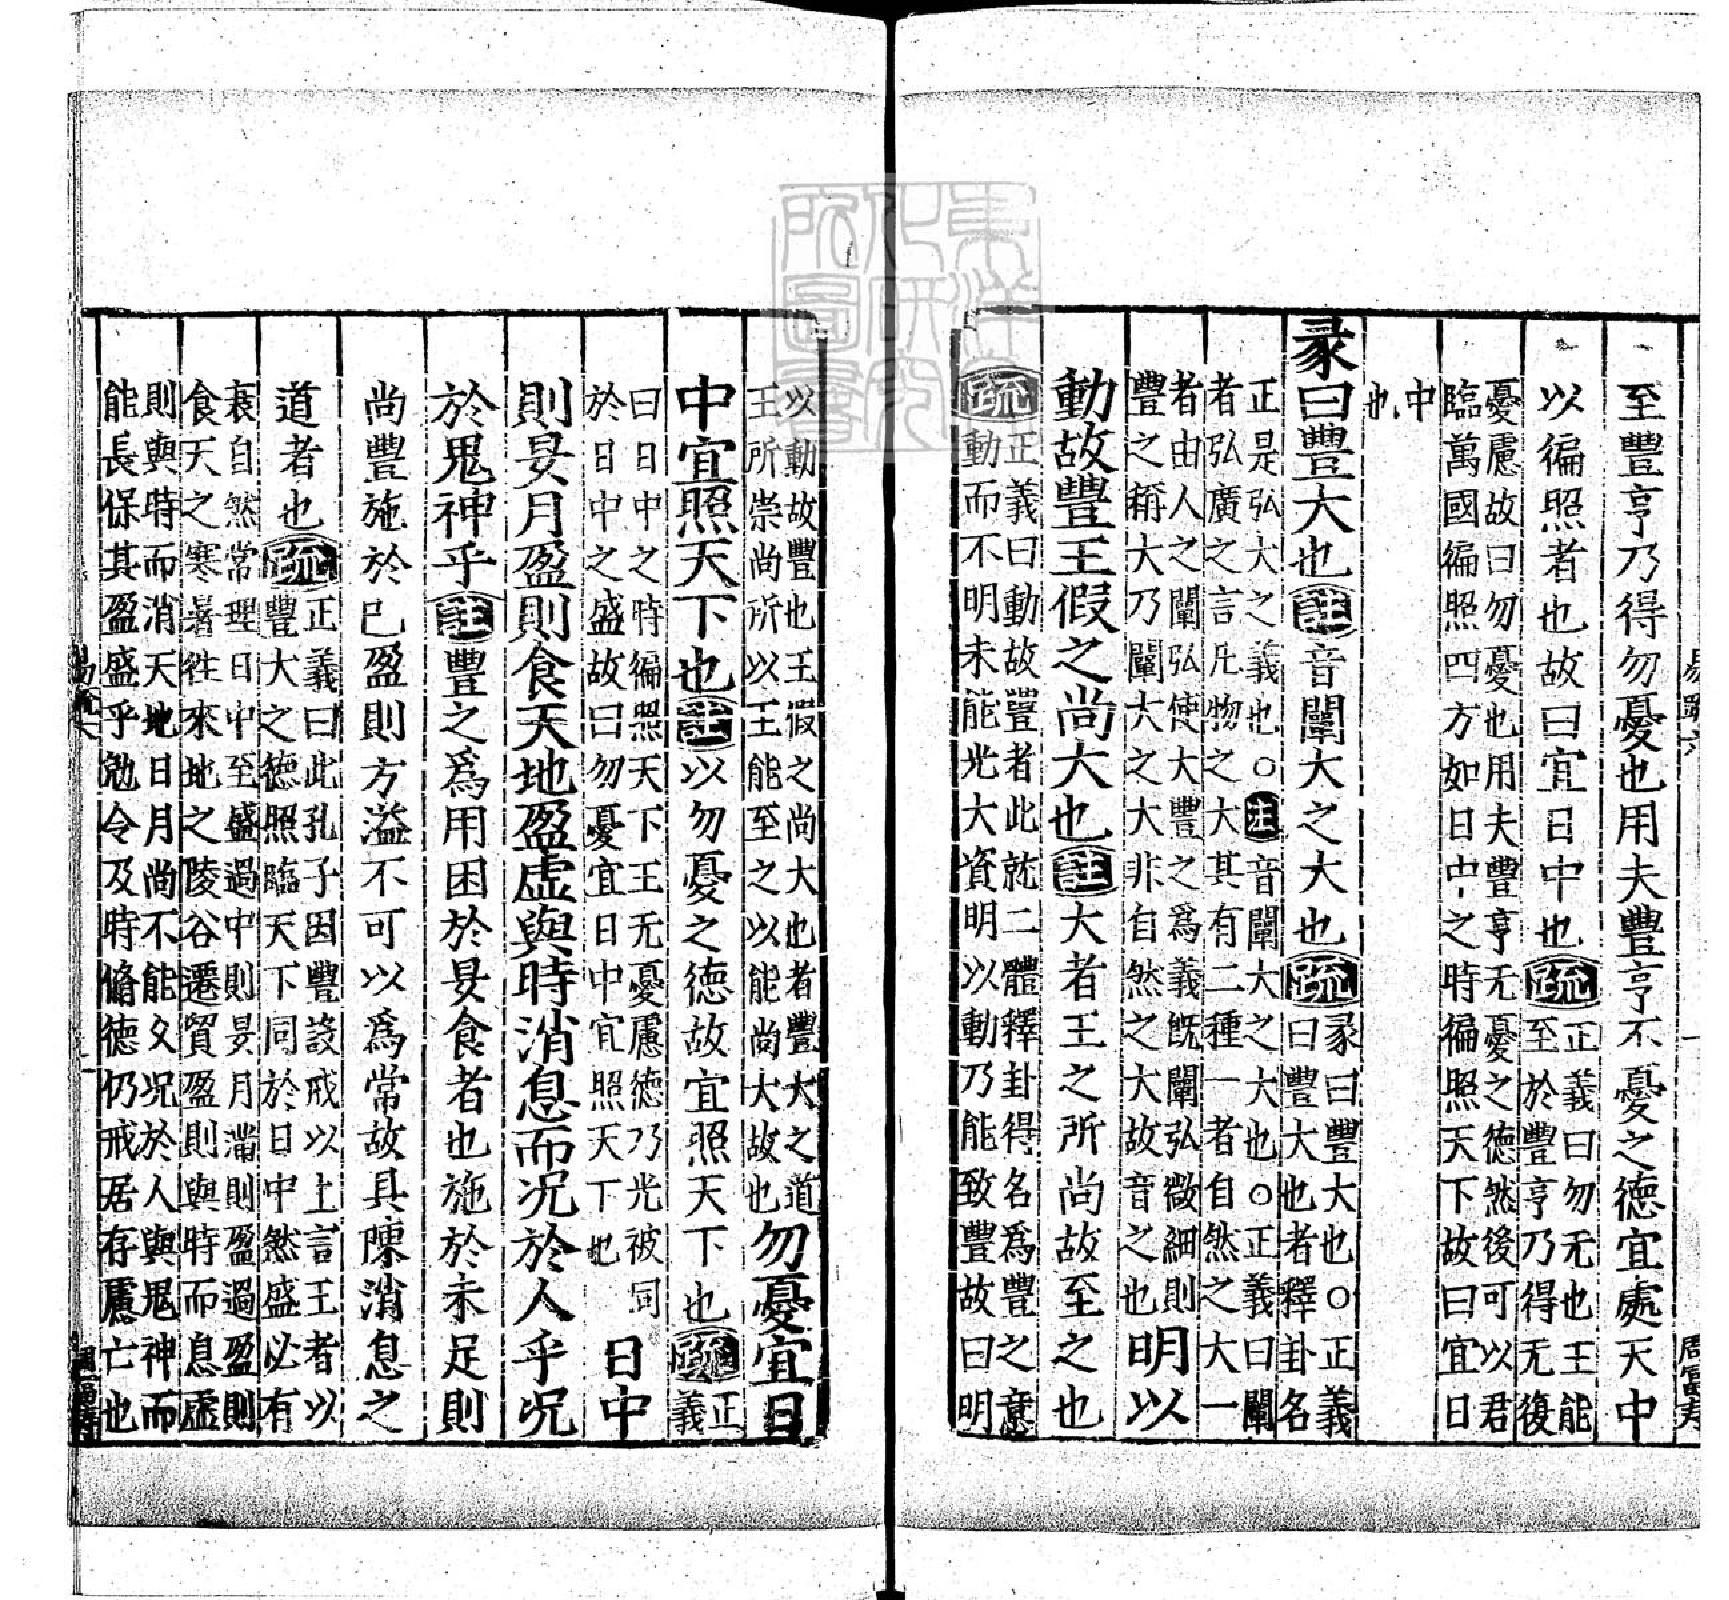 至豐亨乃得勿憂也用夫豐亨不憂之德宜處天中
以徧照者也故曰宜日中也疏正義曰勿无也王能
至於豐亨乃得无復
憂慮故曰勿憂也用夫豐亨无憂之德然後可以君
臨萬國徧照四方如日中之時徧照天下故曰宜日
中
也
彖曰豐大也註音闡大之大也疏彖曰豐大也○正義
曰豐大也者釋卦名
正是弘大之義也○注音闡大之大也○正義曰闡
者弘廣之言凡物之大其有二種一者自然之大一
者由人之闡弘使大豐之爲義既闡弘微細則
豐之稱大乃闡大之大非自然之大故音之也明以
動故豐王假之尚大也註大者王之所尚故至之也
疏正義曰動故豐者此就二體釋卦得名爲豐之意
動而不明未能光大資明以動乃能致豐故曰明
以動故豐也王假之尚大也者豐大之道
王所崇尚所以王能至之以能尚大故也勿憂宜日
中宜照天下也註以勿憂之德故宜照天下也疏正
義
曰日中之時徧照天下王无憂慮德乃光被同
於日中之盛故曰勿憂宜日中宜照天下也日中
則昃月盈則食天地盈虛與時消息而況於人乎況
於鬼神乎註豐之爲用困於昃食者也施於未足則
尚豐施於已盈則方溢不可以爲常故具陳消息之
道者也疏正義曰此孔子因豐設戒以上言王者以
豐大之德照臨天下同於日中然盛必有
衰自然常理日中至盛過中則昃月滿則盈過盈則
食天之寒暑往來地之陵谷遷貿盈則與時而息虛
則與時而消天地日月尚不能久況於人與鬼神而
能長保其盈盛乎勉令及時脩德仍戒居存慮亡也